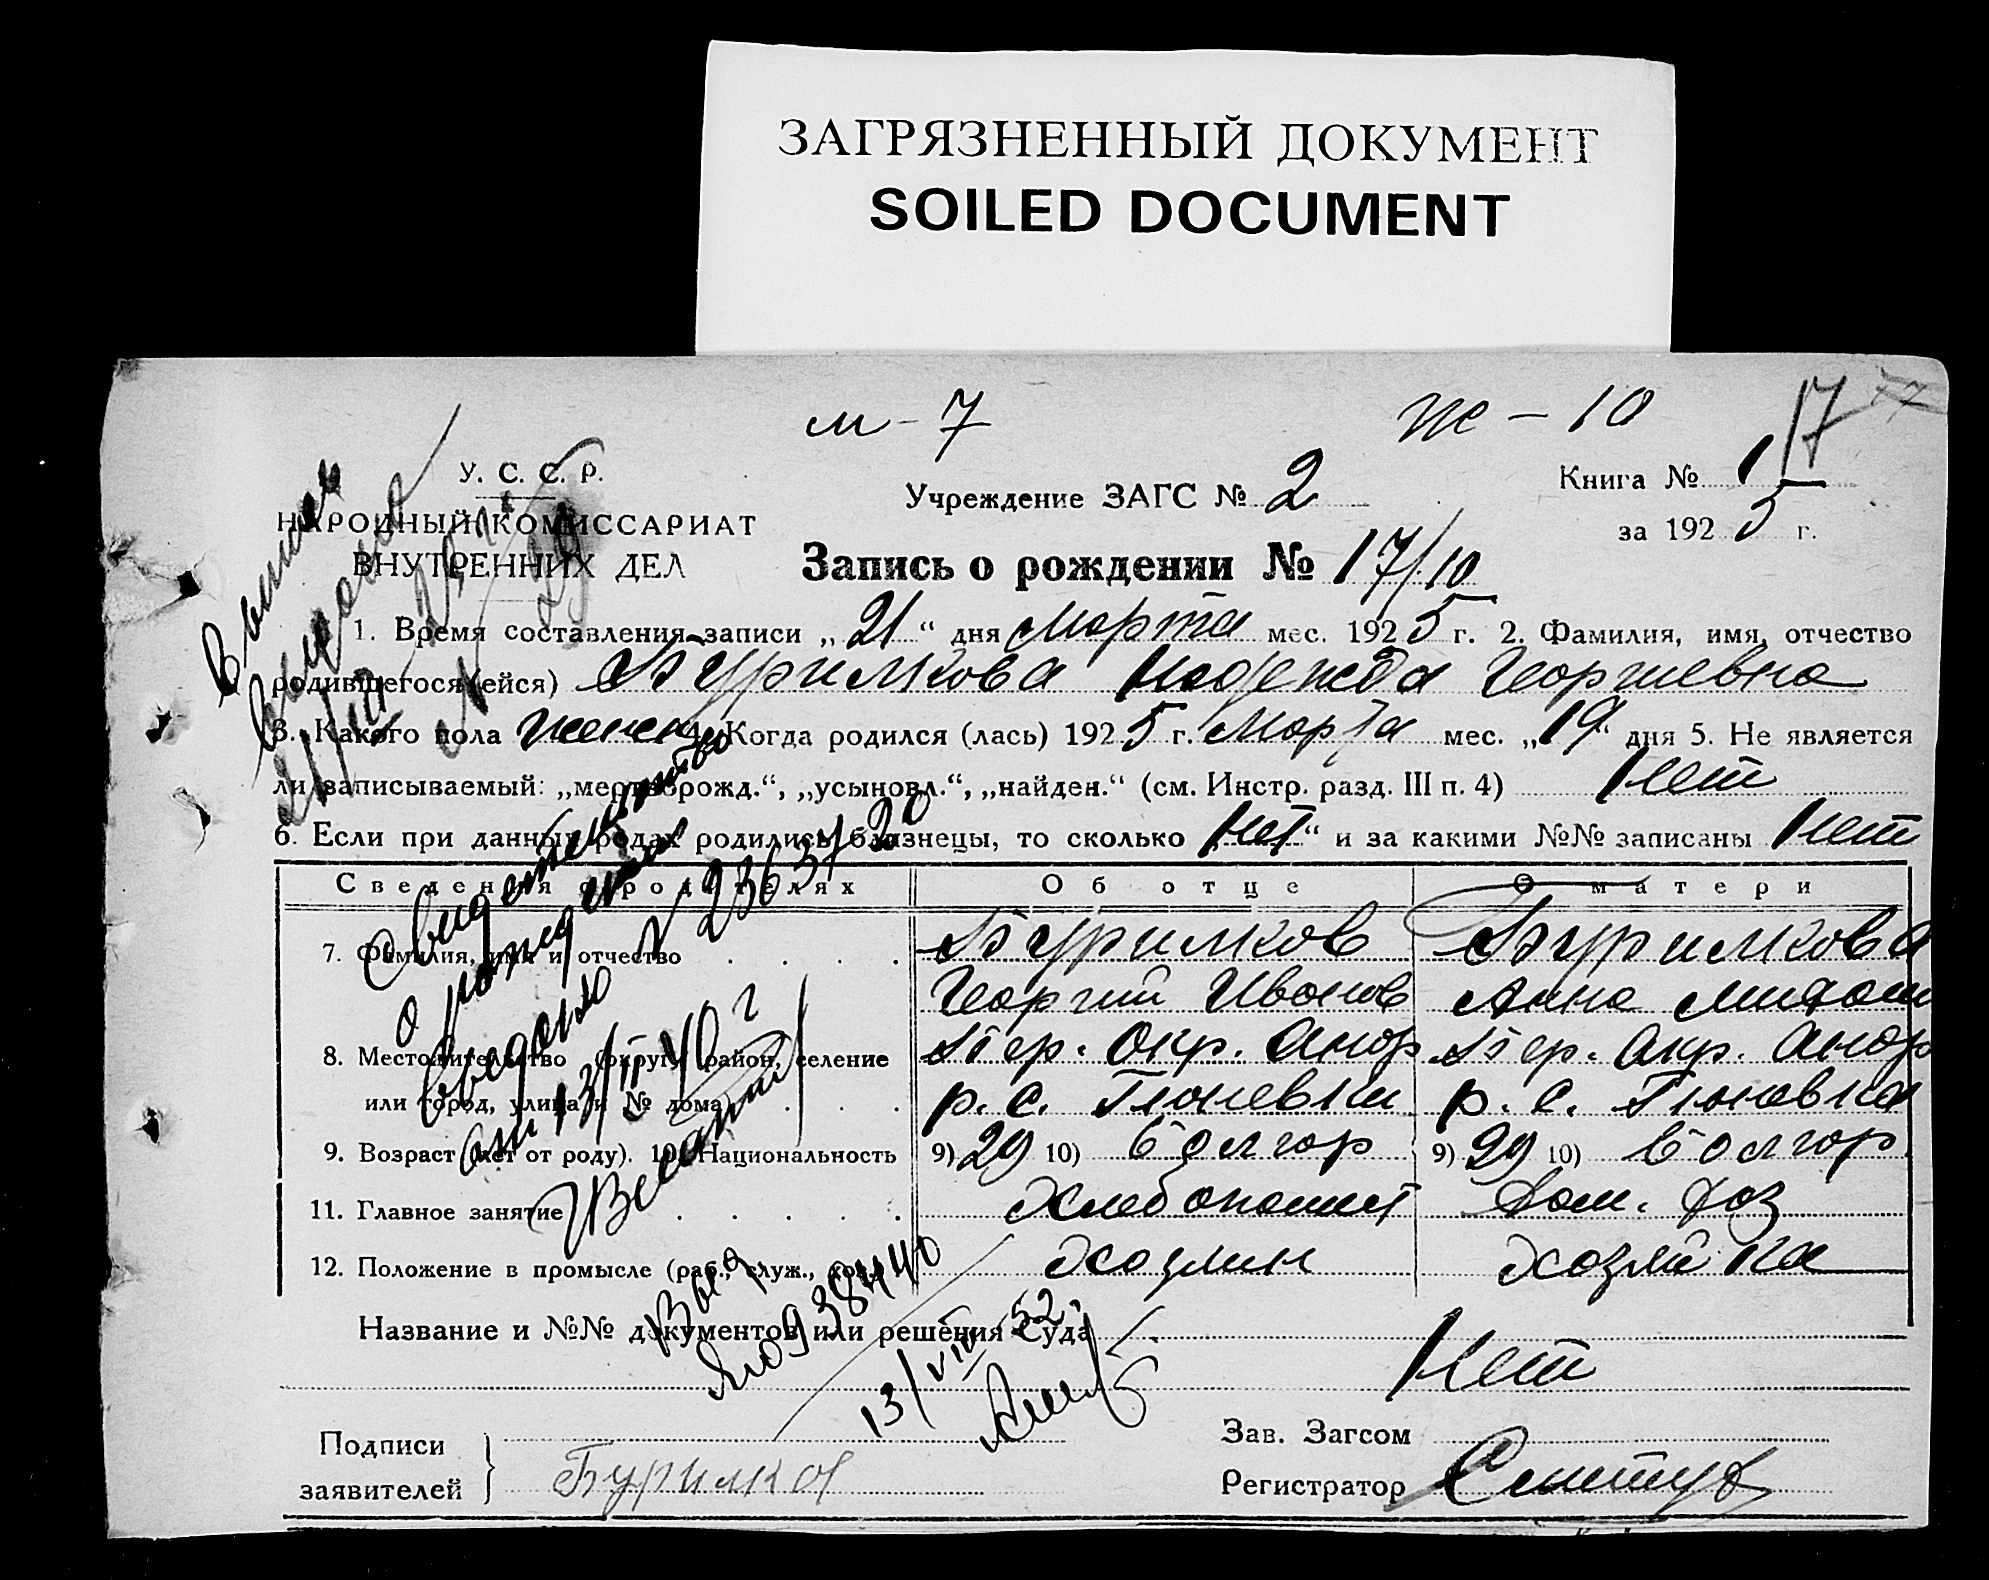 ЗАГРЯЗНЕННЫЙ ДОКУМЕНТ
SOILED DOCUMENT
м - 7
ж - 10
17
У. С. С. Р.
НАРОДНЫЙ КОМИССАРИАТ
ВНУТРЕННИХ ДЕЛ
Учреждение ЗАГС № 2
Книга № 1
за 1925 г.
Запись о рождении № 17/10
1. Время составления записи „21“ дня Марта мес. 1925 г. 2. Фамилия, имя, отчество
родившегося (ейся) Бурилкова Надежда Георгиевна
3. Какого пола женск 4. Когда родился (лась) 1925 г. Марта мес. „19“ дня 5. Не является
ли записываемый: „мертворожд.“, „усыновл.“, „найден.“ (см. Инстр. разд. III п. 4) Нет
6. Если при данных родах родились близнецы, то сколько „нет“ и за какими №№ записаны Нет
Сведения о родителях Об отце О матери
7. Фамилия, имя и отчество Бурилков Бурилкова
Георгий Иванов Анна
8. Местожительство (округ, район, селение Бер. Окр. Андр Бер. Окр. Андр
или город, улица и № дома) р. с. Гюневки р. с. Гюневка
9. Возраст (лет от роду). 10. Национальность 9) 29 10) болгар 9) 29 10) болгар
11. Главное занятие Хлебопашет Дом. хоз
12. Положение в промысле (раб., служ., хоз.) Хозяин хозяйка
Название и №№ документов или решения Суда
Нет
Подписи
заявителей Бурилков
Зав. Загсом
Регистратор
Свидетельство
о рождении
выдано № 2363720
от 13/II 40 г
Выд.
093844
13/VIII 52.